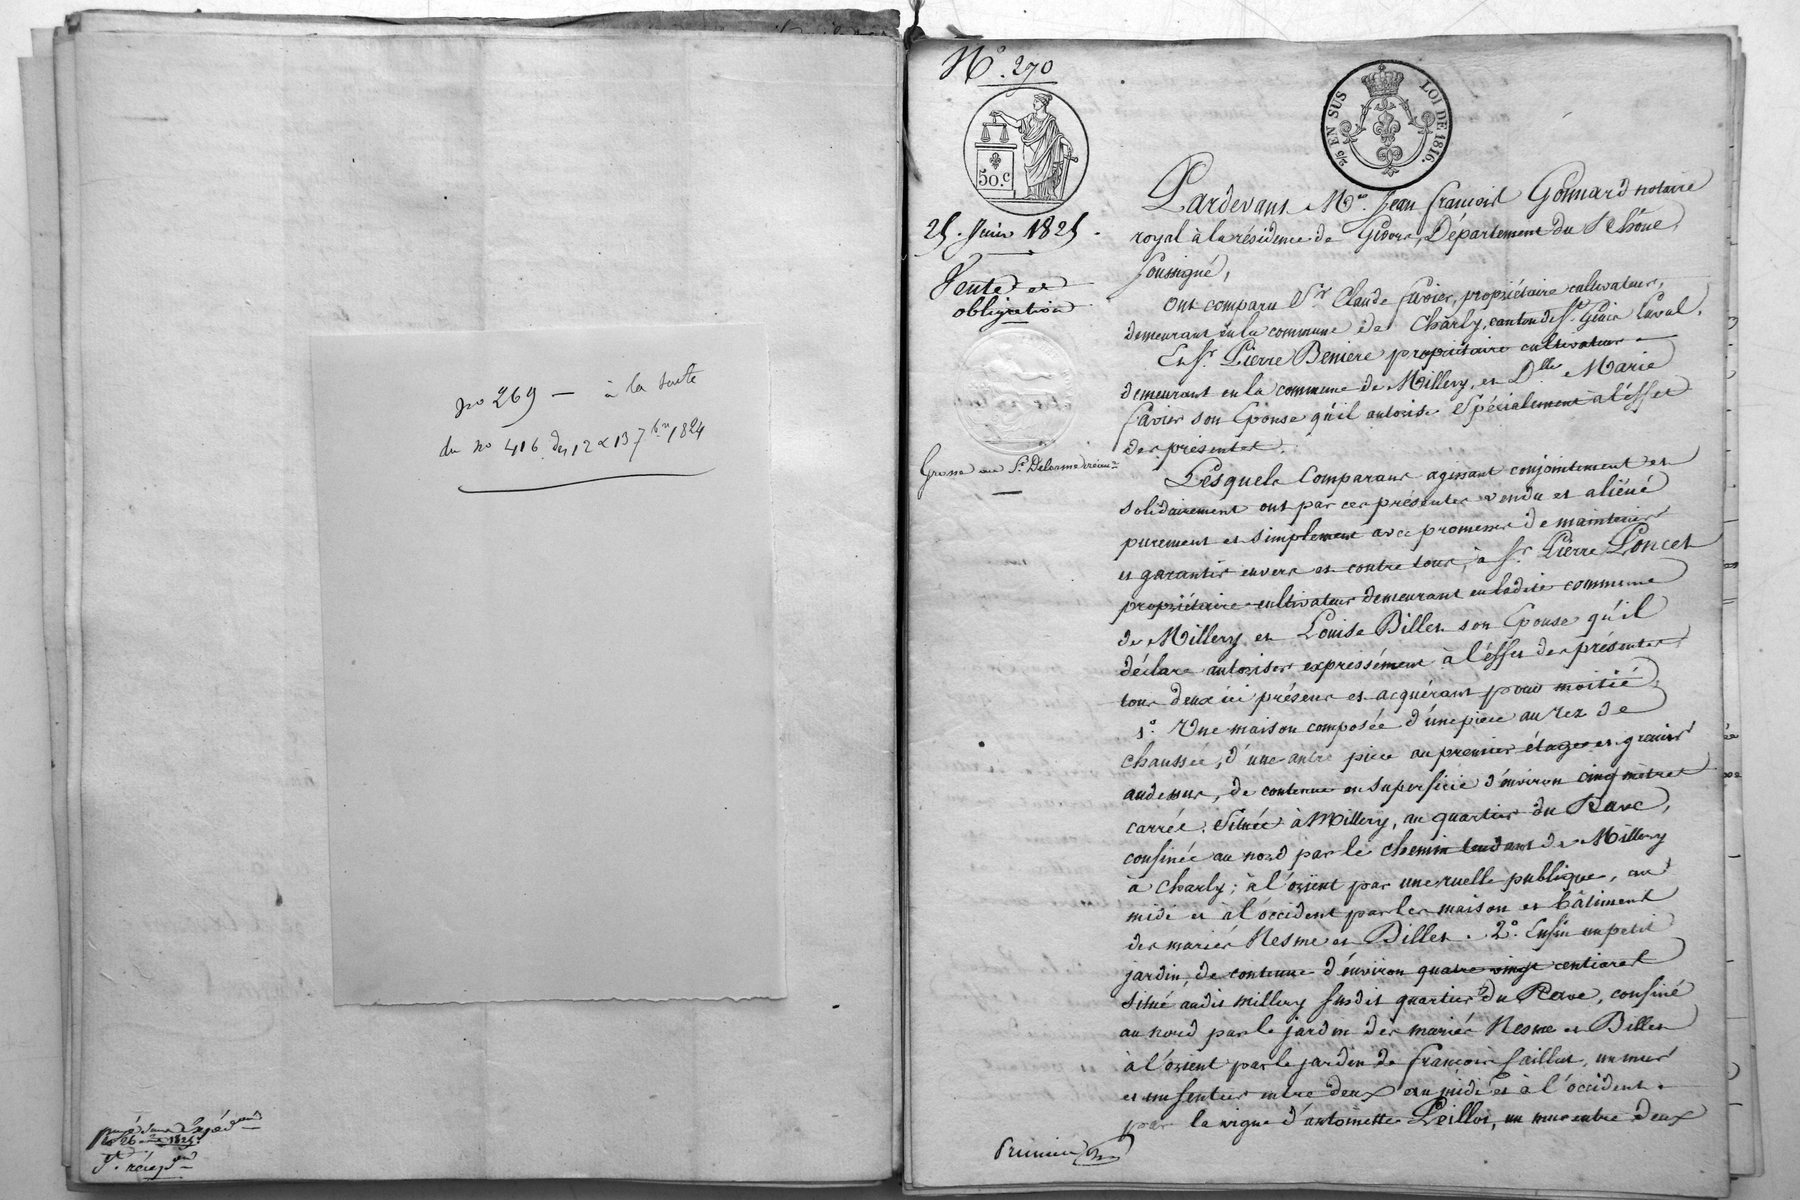 no 269 — à la suite
du no 416 du 12 & 13 7bre 1824
No. 270
50.c
25 EN SUS
LOI DE 1816.
25. Juin 1825.
Vente et
obligation
Grosse au Sr. Delorme
Pardevant Me. Jean françois Gonnard notaire
royal à la résidence de Givors, Département du Rhône
soussigné,
Ont comparu Sr Claude favier, propriétaire cultivateur,
demeurant en la commune de Charly, canton de St. Genis Laval.
Et Sr. Pierre Beniere propriétaire cultivateur
demeurant en la commune de Millery, et Dlle Marie
favier son Epouse qu'il autorise Spécialement à l'effet
des présentes.
Lesquels Comparans agissant conjointement et
solidairement ont par ces présentes vendu et aliéné
purement et simplement avec promesses de maintenir
et garantir envers et contre tous, à Sr. Pierre Poncet
propriétaire cultivateur demeurant en ladite commune
de Millery et Louise Billet son Epouse qu'il
déclare autoriser expressément à l'effet des présentes
tous deux ici présens et acquérant pour moitié.
1o. Une maison composée d'une pièce au rez de
chaussée, d'une autre pièce au premier étage et grenier
audessus, de contenue en superficie d'environ cinq mètres
carrés. Située à Millery, au quartier du Rave,
confinée au nord par le chemin tendant de Millery
à Charly; à l'orient par une ruelle publique, au
midi et à l'occident par les maison et bâtiment
des mariés Nesme et Billet. 2o. Enfin un petit
jardin, de contenue d'environ quatre vingt centiares
situé audit Millery susdit quartier du Rave, confiné
au nord par le jardin des mariés Nesme et Billet
à l'orient par le jardin de françois faillet, un mur
et un sentier entre deux au midi et à l'occident
par la vigne d'antoinette Peillot, un mur entre deux
Premier